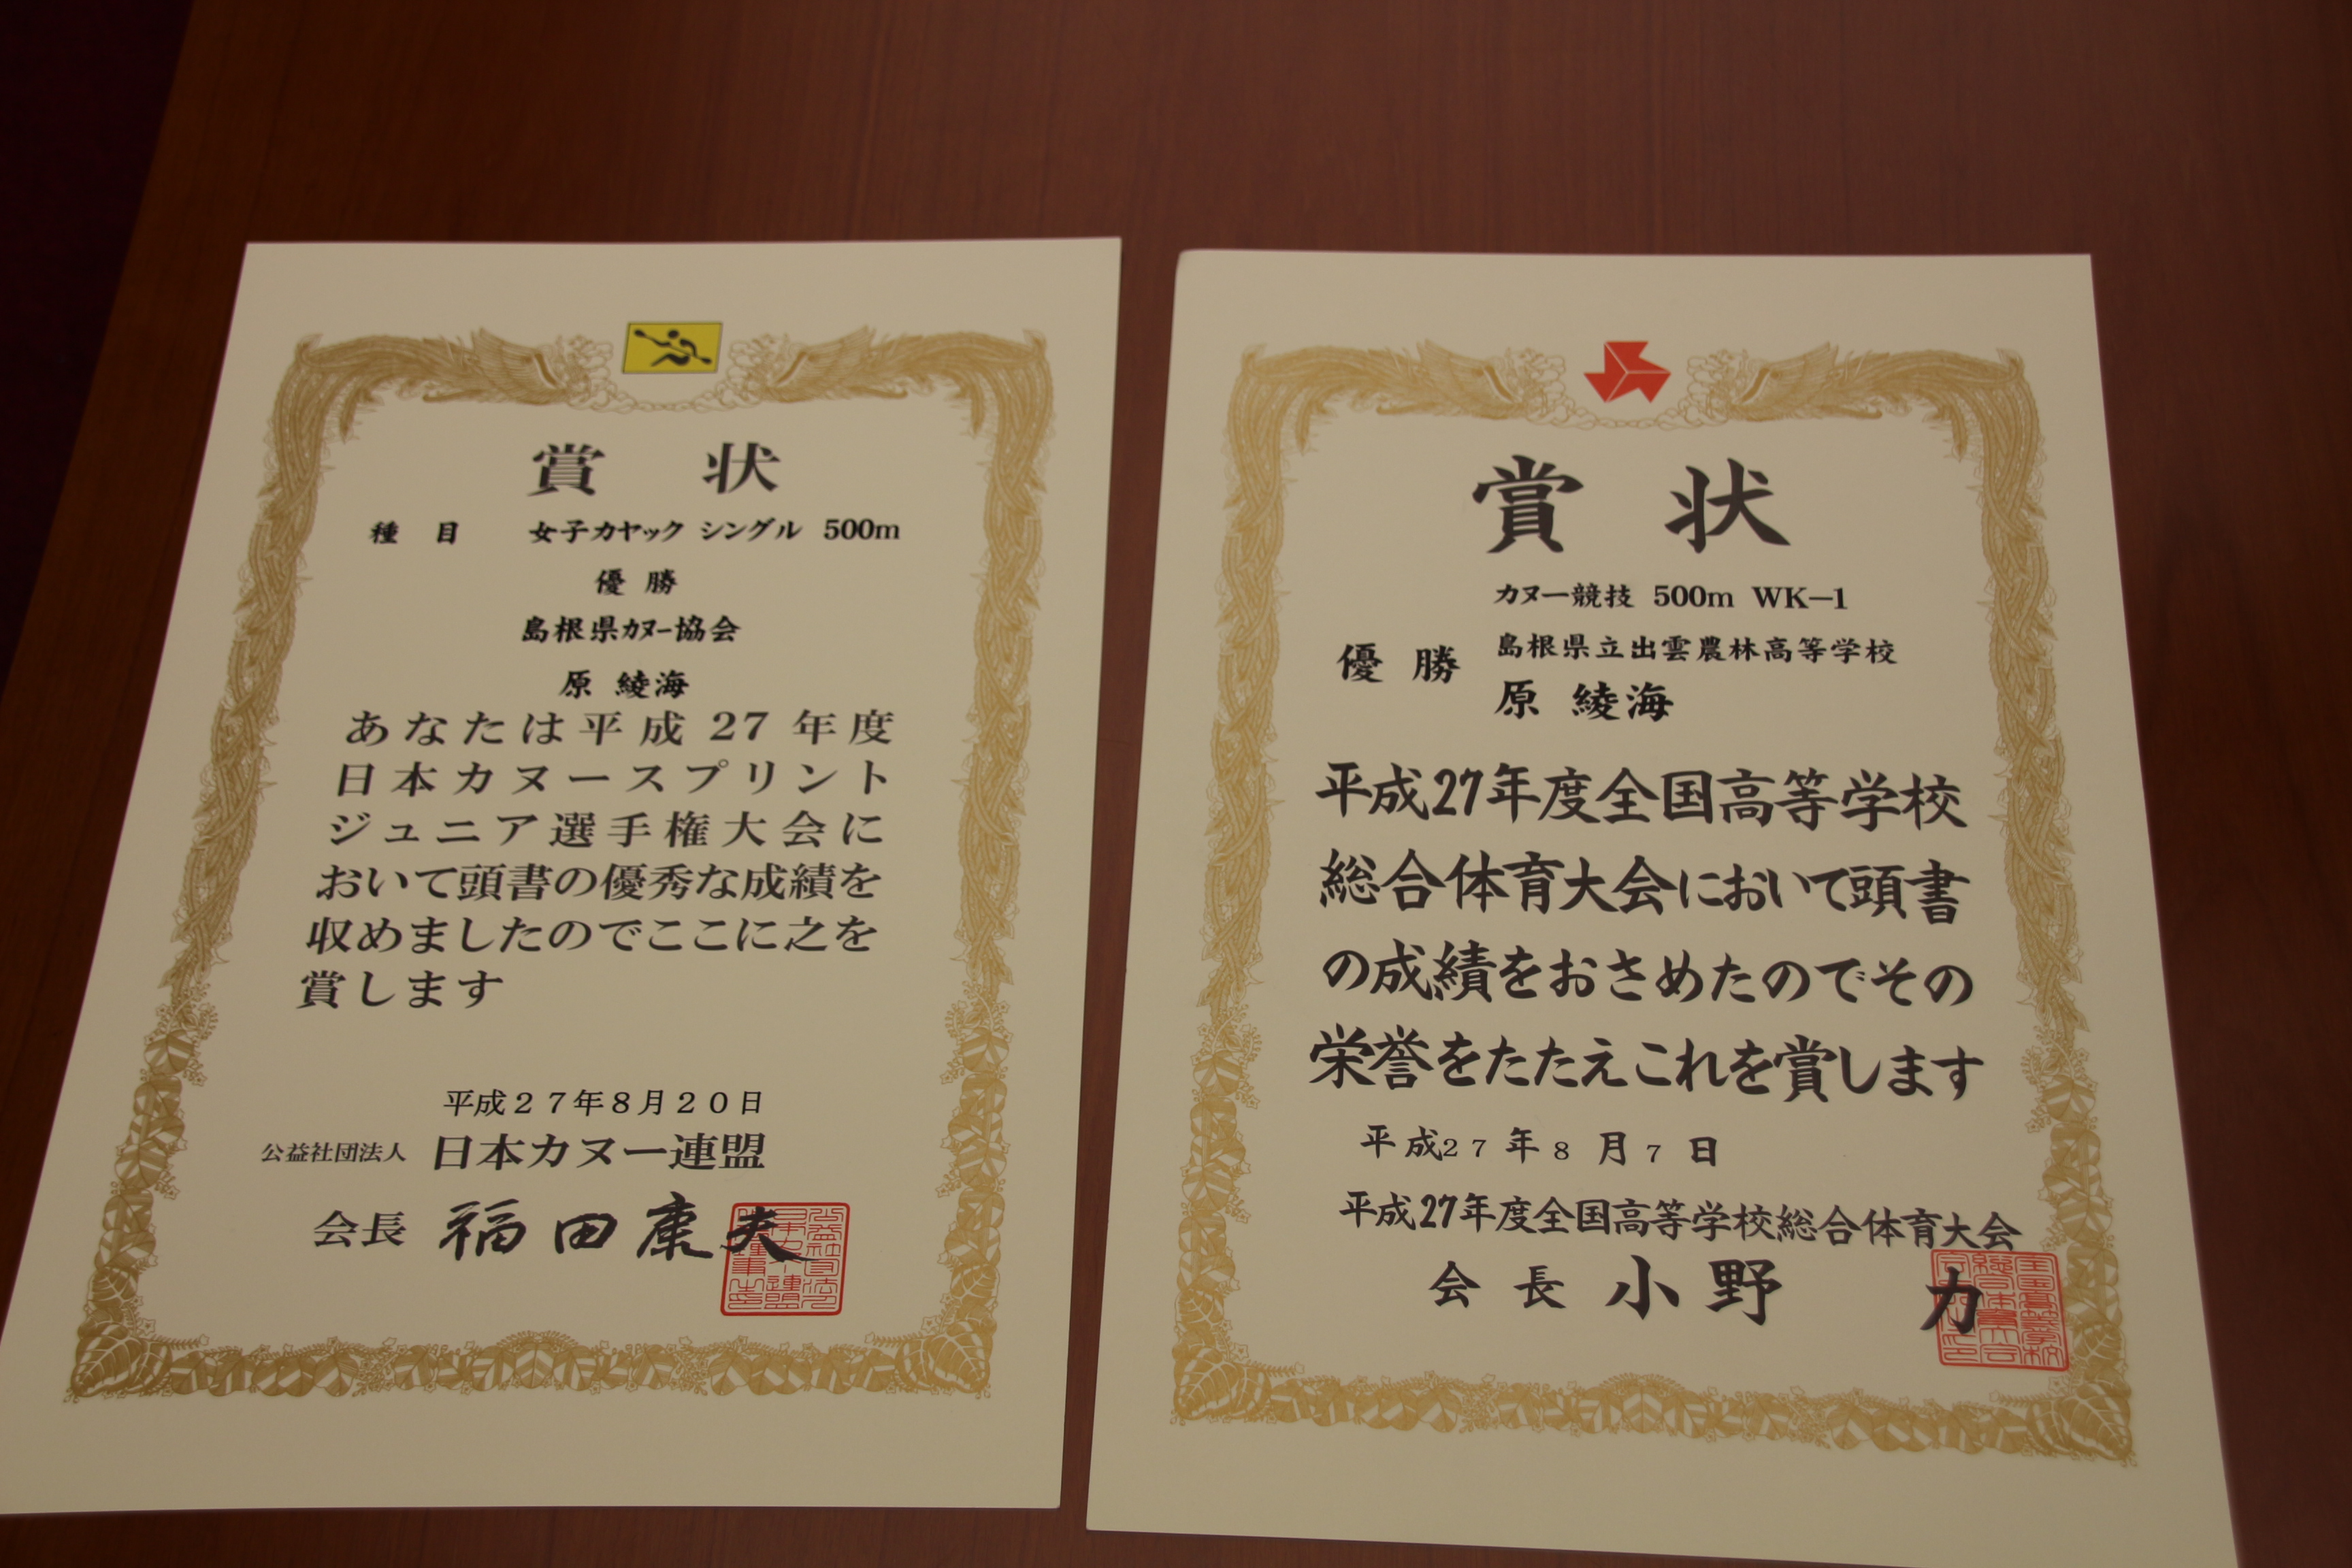 賞 状
種 目 女子カヤック シングル 500m
優 勝
島根県カヌー協会
原 綾海
あなたは平成27年度
日本カヌースプリント
ジュニア選手権大会に
おいて頭書の優秀な成績を
収めましたのでここに之を
賞します
平成27年8月20日
公益社団法人 日本カヌー連盟
会長 福田康夫
賞 状
カヌー競技 500m WK-1
優 勝 島根県立出雲農林高等学校
原 綾海
平成27年度全国高等学校
総合体育大会において頭書
の成績をおさめたのでその
栄誉をたたえこれを賞します
平成27年8月7日
平成27年度全国高等学校総合体育大会
会 長 小野 力